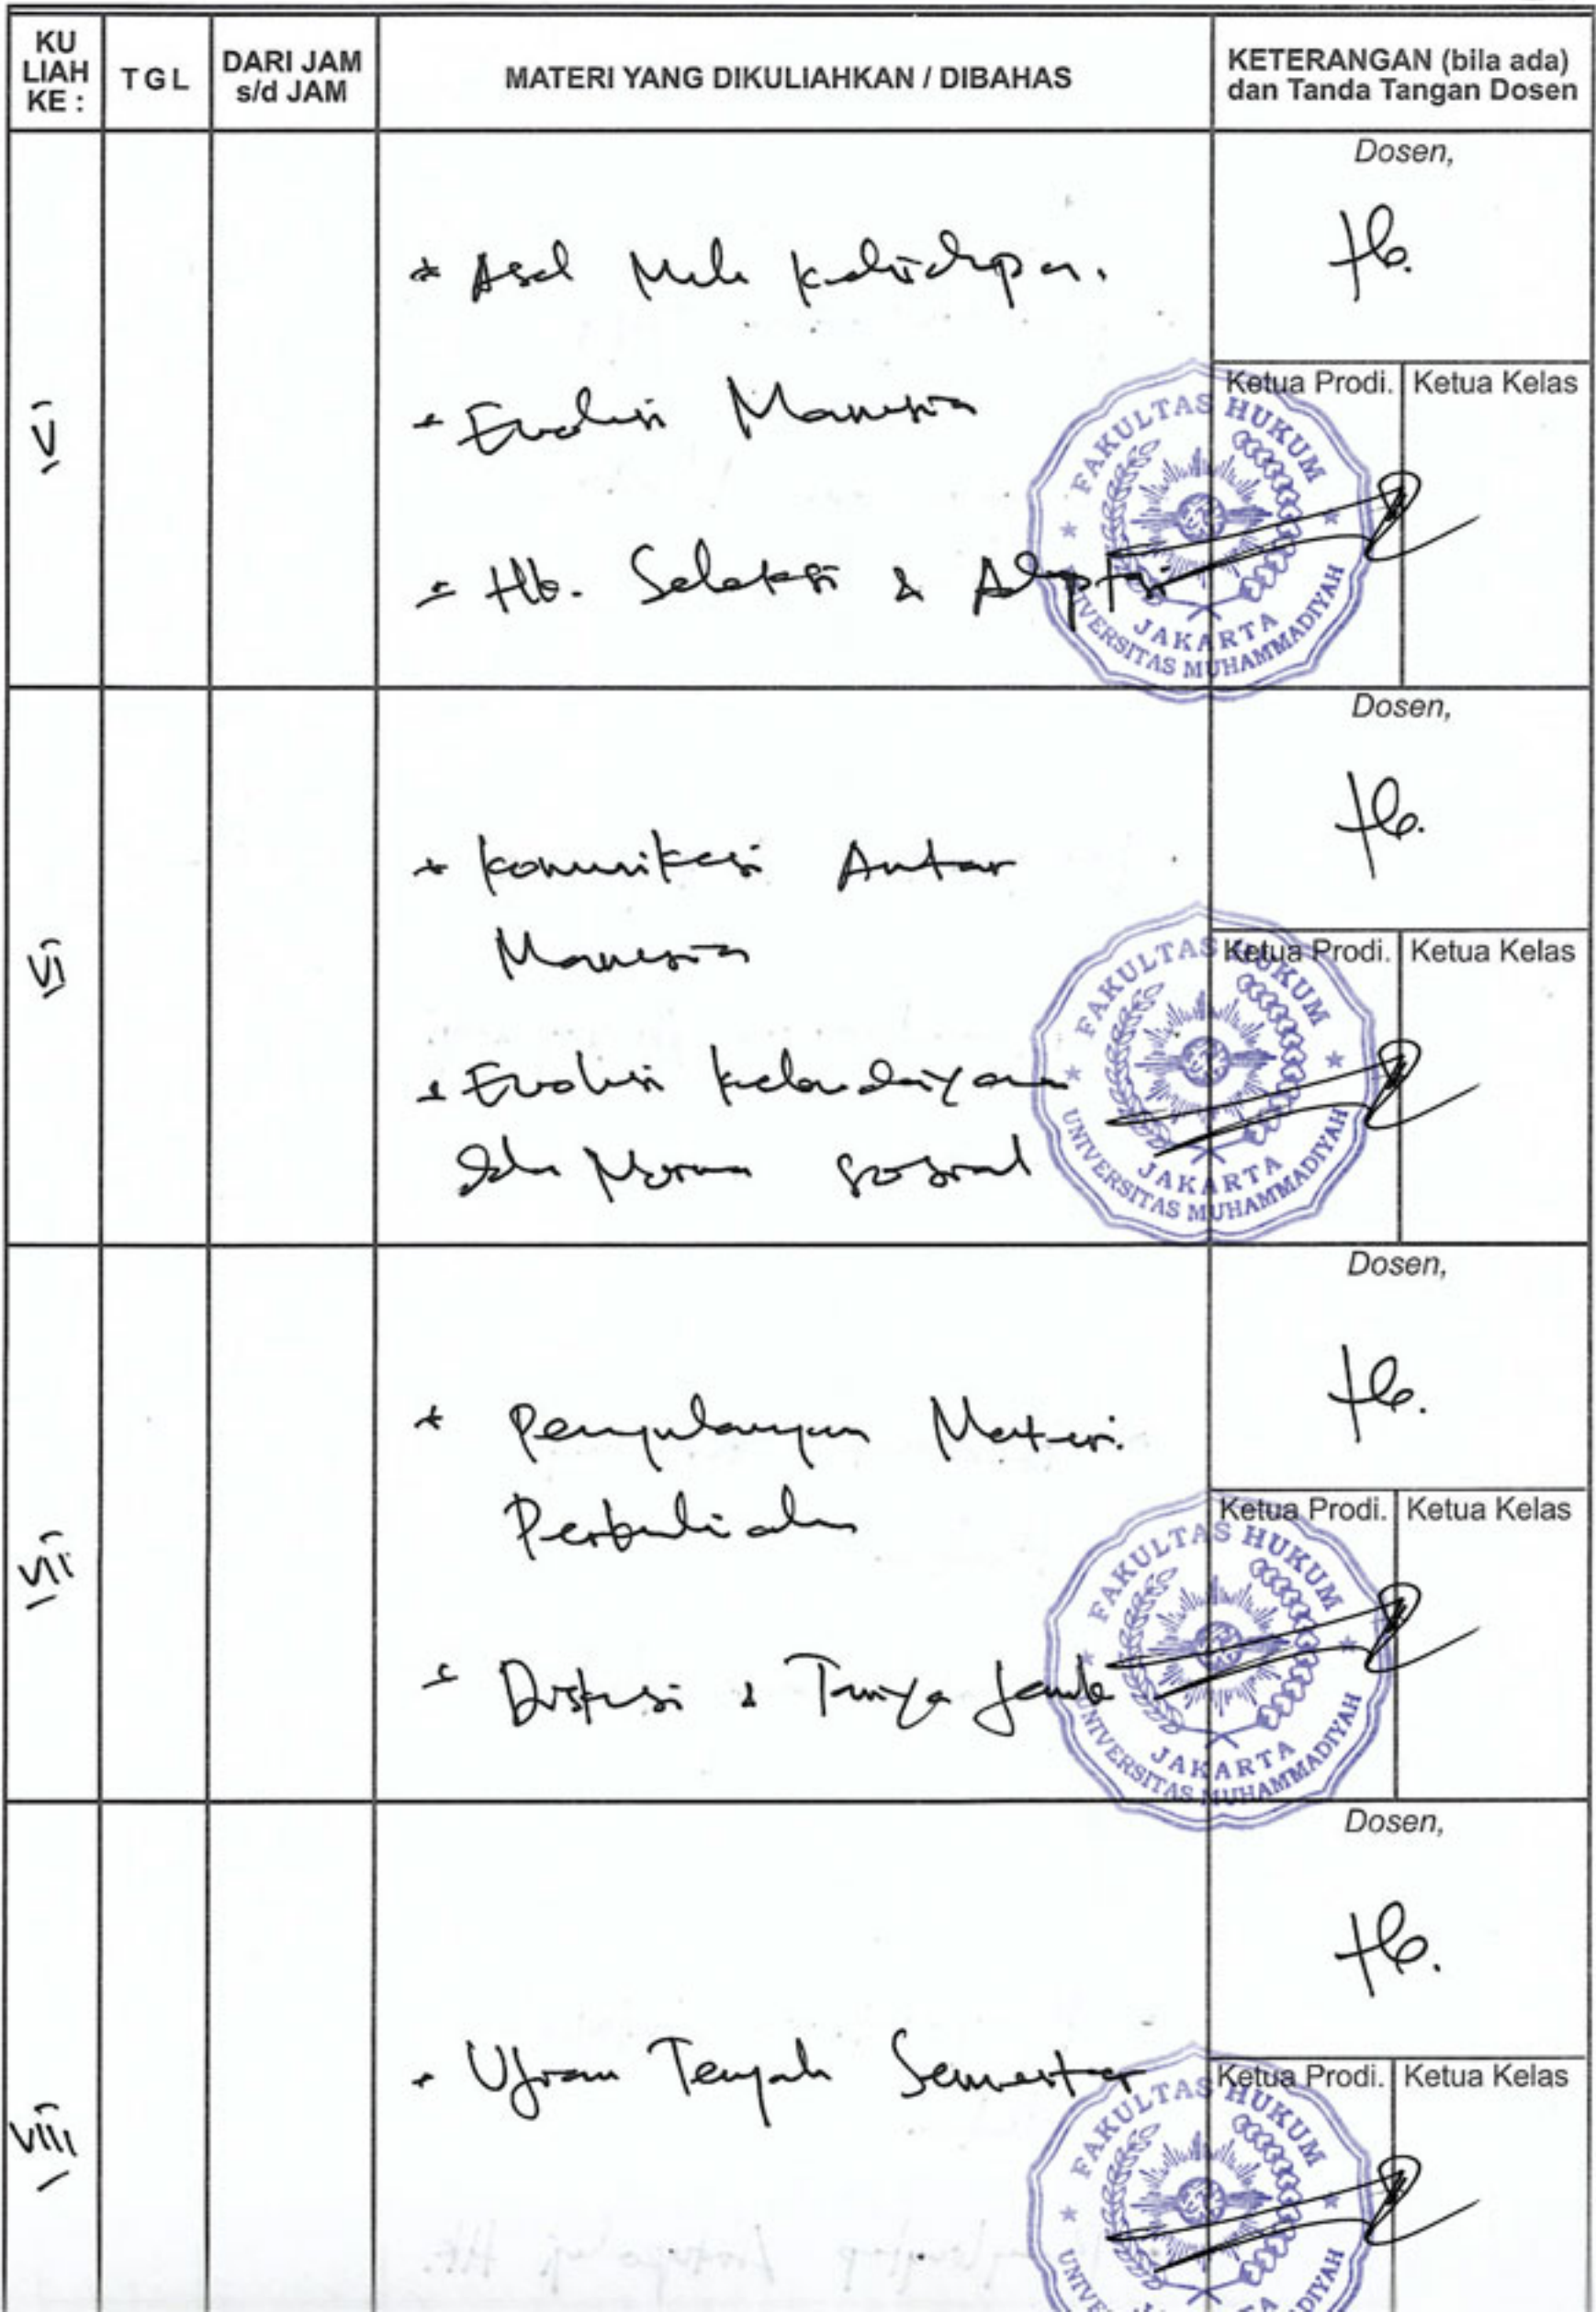 KU LIAH KE :
TGL
DARI JAM s/d JAM
MATERI YANG DIKULIAHKAN / DIBAHAS
KETERANGAN (bila ada) dan Tanda Tangan Dosen
Dosen,
* Asal Mula Kehidupan.
* Evolusi Manusia
* Hb. Seleksi & Adaptasi
Ketua Prodi.
Ketua Kelas
FAKULTAS HUKUM
UNIVERSITAS MUHAMMADIYAH
JAKARTA
VI
Dosen,
* Komunikasi Antar
Manusia
* Evolusi kebudayaan
dan Norma sosial
Ketua Prodi.
Ketua Kelas
FAKULTAS HUKUM
UNIVERSITAS MUHAMMADIYAH
JAKARTA
VII
Dosen,
* Pengulangan Materi.
Perkuliahan
* Diskusi & Tanya Jawab
Ketua Prodi.
Ketua Kelas
FAKULTAS HUKUM
UNIVERSITAS MUHAMMADIYAH
JAKARTA
VIII
Dosen,
* Ujian Tengah Semester
Ketua Prodi.
Ketua Kelas
FAKULTAS HUKUM